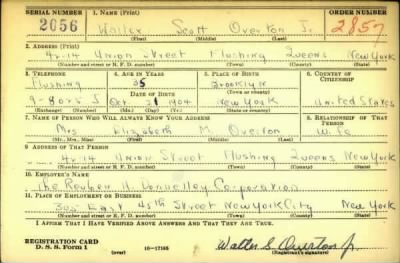 SERIAL NUMBER 1. NAME (Print) ORDER NUMBER
2056 Walter Scott Overton Jr. 2857
(First) (Middle) (Last)
2. ADDRESS (Print)
42-14 Union Street Flushing Queens New York
(Number and street or R. F. D. number) (Town) (County) (State)
3. TELEPHONE 4. AGE IN YEARS 5. PLACE OF BIRTH 6. COUNTRY OF CITIZENSHIP
Flushing 35 Brooklyn
DATE OF BIRTH
9- Oct 21 1904 New York United States
(Exchange) (Number) (Mo.) (Day) (Yr.) (State or country)
7. NAME OF PERSON WHO WILL ALWAYS KNOW YOUR ADDRESS 8. RELATIONSHIP OF THAT PERSON
Mrs Elizabeth M Overton Wife
(Mr., Mrs., Miss) (First) (Middle) (Last)
9. ADDRESS OF THAT PERSON
42-14 Union Street Flushing Queens New York
(Number and street or R. F. D. number) (Town) (County) (State)
10. EMPLOYER'S NAME
The Reuben H. Donnelley Corporation
11. PLACE OF EMPLOYMENT OR BUSINESS
305 East 45th Street New York City New York
(Number and street or R. F. D. number) (Town) (County) (State)
I AFFIRM THAT I HAVE VERIFIED ABOVE ANSWERS AND THAT THEY ARE TRUE.
REGISTRATION CARD
D. S. S. Form 1 (over) 16-17105 Walter S. Overton Jr.
(Registrant's signature)